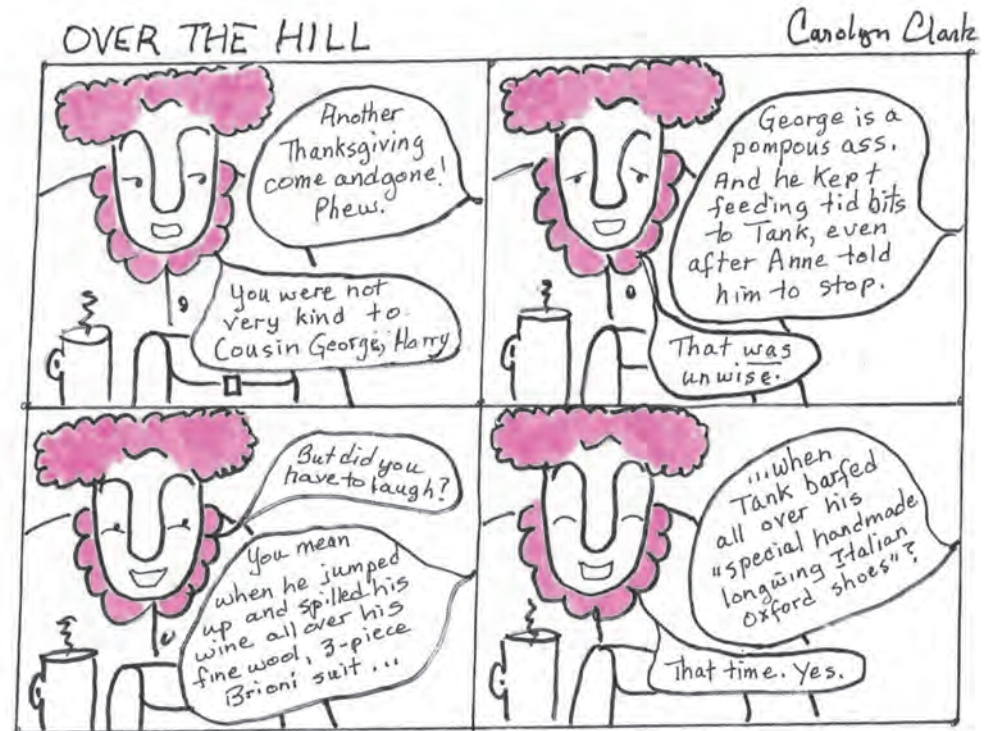 OVER THE HILL
Carolyn Clark
Another
Thanksgiving
come and gone!
Phew.
You were not
very kind to
Cousin George, Harry
George is a
pompous ass.
And he kept
feeding tid bits
to Tank, even
after Anne told
him to stop.
That was
unwise.
But did you
have to laugh?
You mean
when he jumped
up and spilled his
wine all over his
fine wool, 3-piece
Brioni suit ...
...when
Tank barfed
all over his
"special handmade
longwing Italian
Oxford shoes"?
That time. Yes.